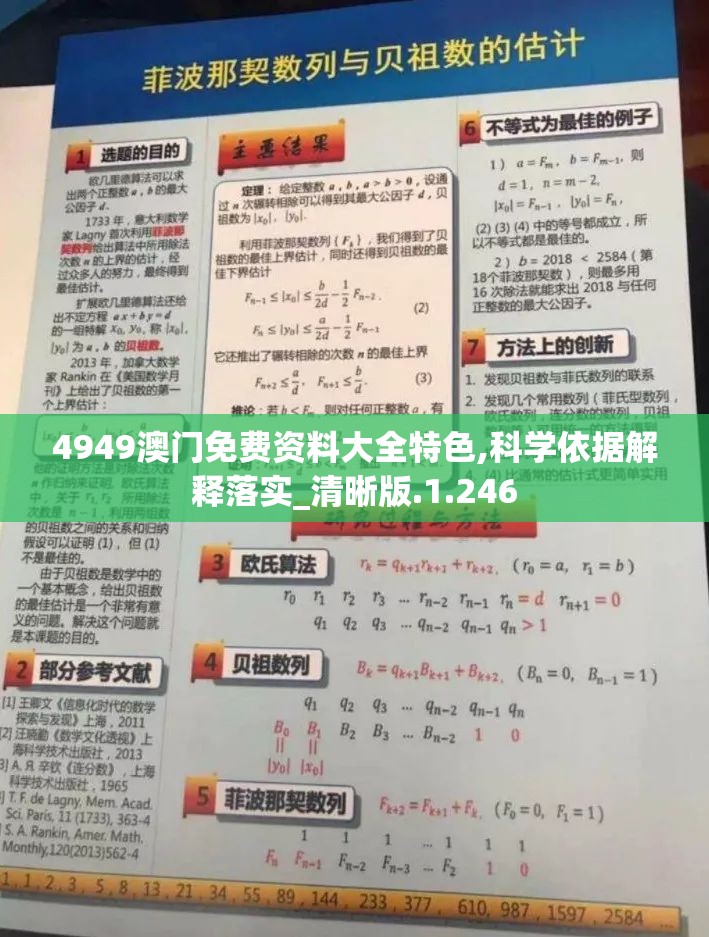 菲波那契数列与贝祖数的估计
1 选题的目的
欧几里德算法可以求
出两个正整数 a , b 的最大
公因子 d.
1733 年，意大利数学
家 Lagny 首次利用菲波那
契数列给出算法中所用除法
次数 n 的上界的估计，经
过众多人的努力，最终得到
最佳估计。
扩展欧几里德算法还给
出不定方程 ax+by=d
的一组特解 x₀, y₀, 称 |x₀|,
|y₀| 为 a , b 的贝祖数。
2013 年，加拿大数学
家 Rankin 在《美国数学月
刊》上给出了贝祖数的第一
个上界估计：
他的证明方法是对除法次数
n 作归纳来证明。欧氏算法
中，关于 r₁, r₂ 所用除法
次数是 n − 1，利用两组数
的贝祖数之间的关系和归纳
假设可以证明 (1)，但 (1)
不是最佳的。
由于贝祖数是数学中的
一个基本概念，给出贝祖数
的最佳估计是一个非常有意
义的问题。解决这个问题就
是本课题的目的。
2 部分参考文献
[1] 王卿文《信息化时代的数学
探索与发现》上海，2011
[2] 汪晓勤《数学文化透视》上
海科学技术出版社，2013
[3] А. Я. 辛钦《连分数》，上海
科学技术出版社，1965
[4] T. F. de Lagny, Mem. Acad.
Sci. Paris, 11 (1733), 363-4
[5] S. A. Rankin, Amer. Math.
Monthly,120(2013)562-4
主要结果
定理：给定整数 a , b , a > b > 0 , 设通
过 n 次辗转相除可以得到其最大公因子 d，贝
祖数为 |x₀|, |y₀|.
利用菲波那契数列 {Fₖ}，我们得到了贝
祖数的最佳上界估计，同时还得到贝祖数的最
佳下界估计
Fₙ₋₁ ≤ |x₀| ≤ b/2d − 1/2 Fₙ₋₂,
(2)
Fₙ ≤ |y₀| ≤ a/2d − 1/2 Fₙ₋₁
它还推出了辗转相除的次数 n 的最佳上界
Fₙ₊₂ ≤ a/d, Fₙ₊₁ ≤ b/d. (3)
推论：若 b < Fₙ, 则对任何正整数 a，有
4949澳门免费资料大全特色,科学依据解
释落实_清晰版.1.246
研究过程与方法
3 欧氏算法 rₖ = qₖ₊₁rₖ₊₁ + rₖ₊₂, (r₀ = a, r₁ = b)
r₀ r₁ r₂ r₃ … rₙ₋₂ rₙ₋₁ rₙ = d rₙ₊₁ = 0
q₁ q₂ q₃ … qₙ₋₂ qₙ₋₁ qₙ > 1
4 贝祖数列 Bₖ = qₖ₊₁Bₖ₊₁ + Bₖ₊₂, (Bₙ = 0, Bₙ₋₁ = 1)
q₁ q₂ q₃ … qₙ₋₂ qₙ₋₁ qₙ
B₀ B₁ B₂ B₃ … Bₙ₋₂ 1 0
|| ||
|y₀| |x₀|
5 菲波那契数列 Fₖ₊₂ = Fₖ₊₁ + Fₖ, (F₀ = 0, F₁ = 1)
1 1 1 … 1 1 1
Fₙ Fₙ₋₁ Fₙ₋₂ Fₙ₋₃ … F₂ 1 0
6 不等式为最佳的例子
1) a = Fₘ, b = Fₘ₋₁, 则
d = 1, n = m − 2,
|x₀| = Fₙ₋₁, |y₀| = Fₙ,
(2) (3) (4) 中的等号都成立，所
以不等式都是最佳的。
2) b = 2018 < 2584 (第
18个菲波那契数)，则最多用
16 次除法就能求出 2018 与任何
正整数的最大公因子。
7 方法上的创新
1. 发现贝祖数与菲氏数列的联系
2. 发现几个常用数列 (菲氏型数列，
欧氏数列，连分数的数列，贝祖
(4) 比通常的估计式更简单实用
1, 1, 2, 3, 5, 8, 13, 21, 34, 55, 89, 144, 233, 377, 610, 987, 1597, 2584 ...